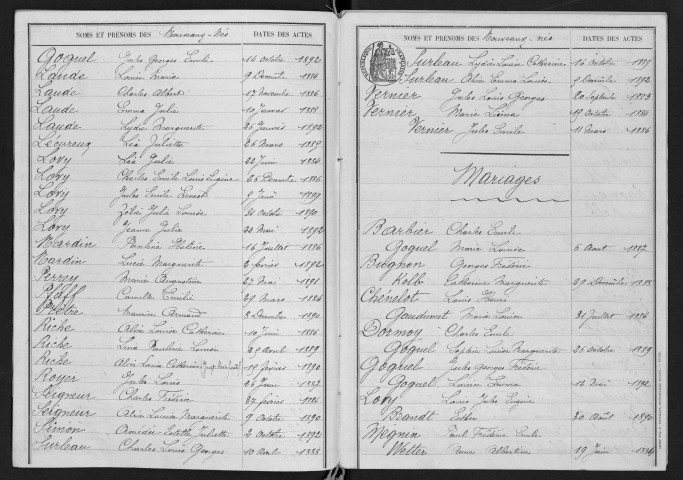 NOMS ET PRÉNOMS DES Nouveaux-Nés DATES DES ACTES
Goguel Jules Georges Emile 14 octobre 1892
Laude Louise Marie 9 Décembre 1884
Laude Charles Albert 17 Novembre 1886
Laude Emma Julie 10 Janvier 1888
Laude Lydie Marguerite 26 Janvier 1890
Lécureux Léa Juliette 26 Mars 1889
Lovy Léa Julie 22 Juin 1884
Lovy Charles Emile Louis Eugène 26 Décembre 1886
Lovy Jules Emile Ernest
Lovy Zélie Julie Louise 31 octobre 1890
Lovy Jeanne Julie 22 Mai 1892
Mardin Pauline 16 Juillet 1886
Mardin Lucie Marguerite 2 février 1892
Perrey Marie Augustine 22 Mai 1891
Pfaff Camille Emile 29 Mars 1884
Maurice Armand 8 Décembre 1890
Riche Alice Louise Catherine 10 Juin 1886
Riche Lina Pauline Louise 29 Avril 1889
Riche Alice Louise Catherine 19 février 1890
Royer Jules Louis 26 Juin
Seigneur Charles Frédéric 27 février 1886
Seigneur Alice Louise Marguerite 9 octobre 1890
Simon Amédée Estelle Juliette 2 octobre 1892
Surleau Charles Louis Georges 10 Avril 1888
NOMS ET PRÉNOMS DES Nouveaux-nés DATES DES ACTES
Surleau Lydie Louise Catherine 16 octobre
Surleau Alice Emma Louise 9 Décembre 1892
Vernier Jules Louis Georges 20 Septembre 1883
Vernier Marie Léonie 19 octobre 1884
Vernier Jules Emile 11 Mars 1886
Mariages
Barbier Charles Emile
Goguel Marie Louise 6 Aout 1887
Bugnon Georges Frédéric
Kolb Catherine Marguerite 29 Décembre 1888
Chénelot Louis Henri
Gaudumet Marie Louise 31 Juillet 1886
Dormoy Charles Emile
Goguel Sophie Louise Marguerite 26 octobre 1889
Goguel Jules Georges Frédéric
Goguel Louise Emma 14 Mai 1892
Lovy Louis Jules Eugène
Brandt Esther 30 Août 1890
Megnin Paul Frédéric Emile
Welter Anna Albertine 19 Juin 1884